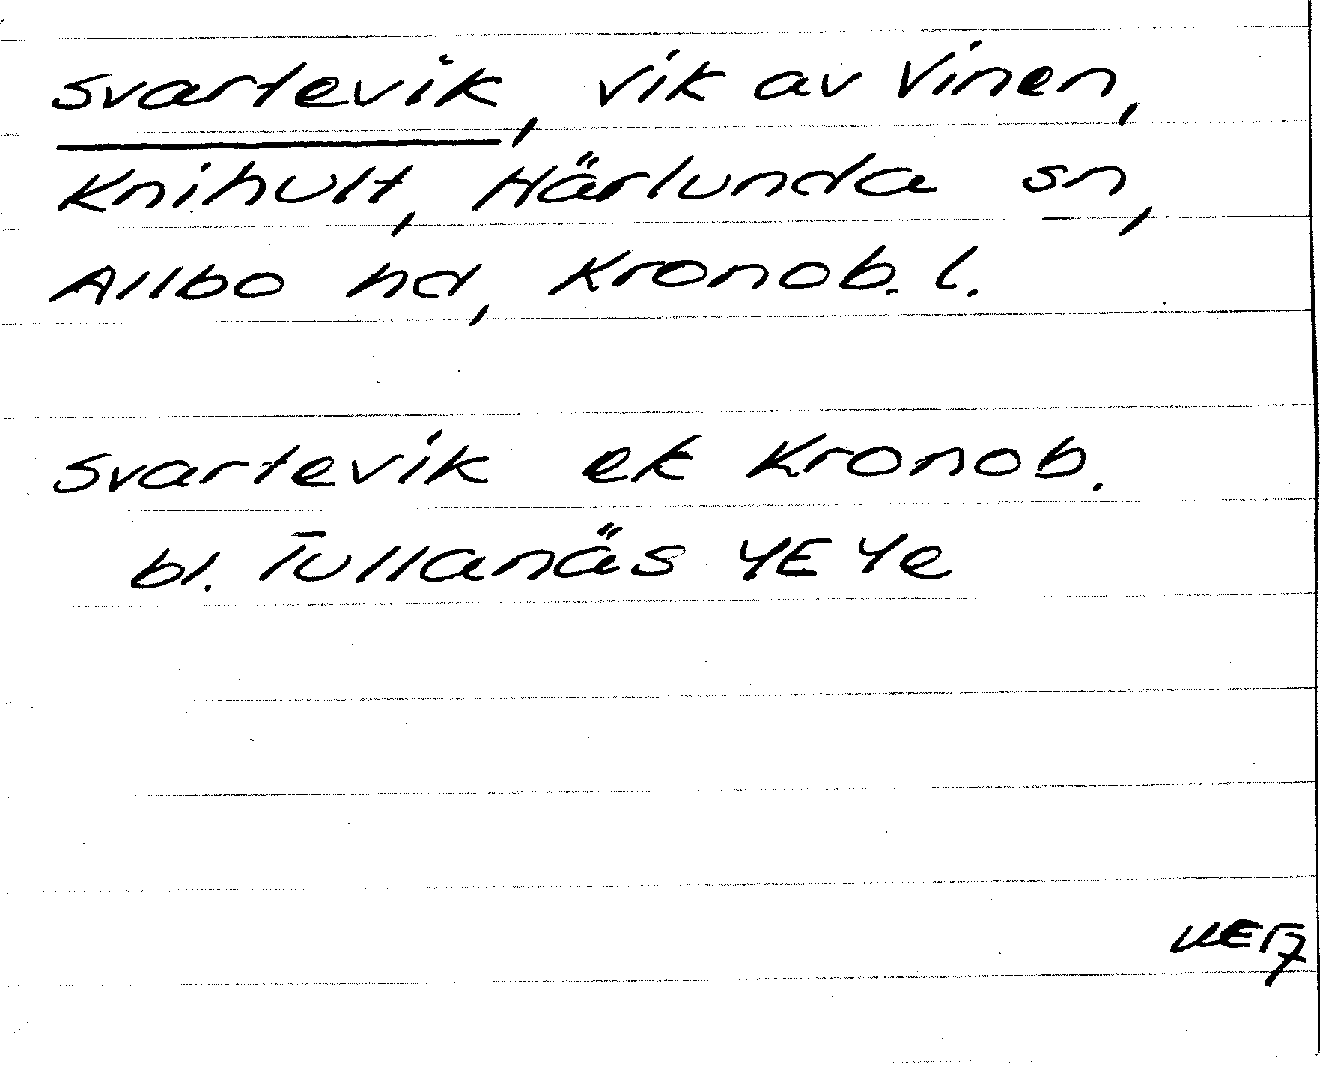 Svartevik, vik av Vinen,
Knihult, Härlunda sn,
Allbo hd, Kronob. l.
Svartevik ek Kronob.
bl. Tullanäs 4E 4e